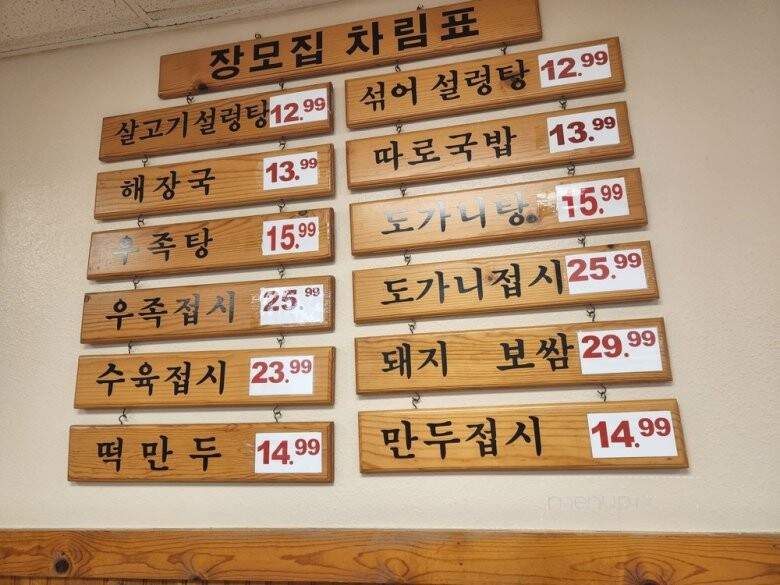 장모집 차림표
살고기설렁탕 12.99
섞어 설렁탕 12.99
해장국 13.99
따로국밥 13.99
우족탕 15.99
도가니탕 15.99
우족접시 25.99
도가니접시 25.99
수육접시 23.99
돼지 보쌈 29.99
떡만두 14.99
만두접시 14.99